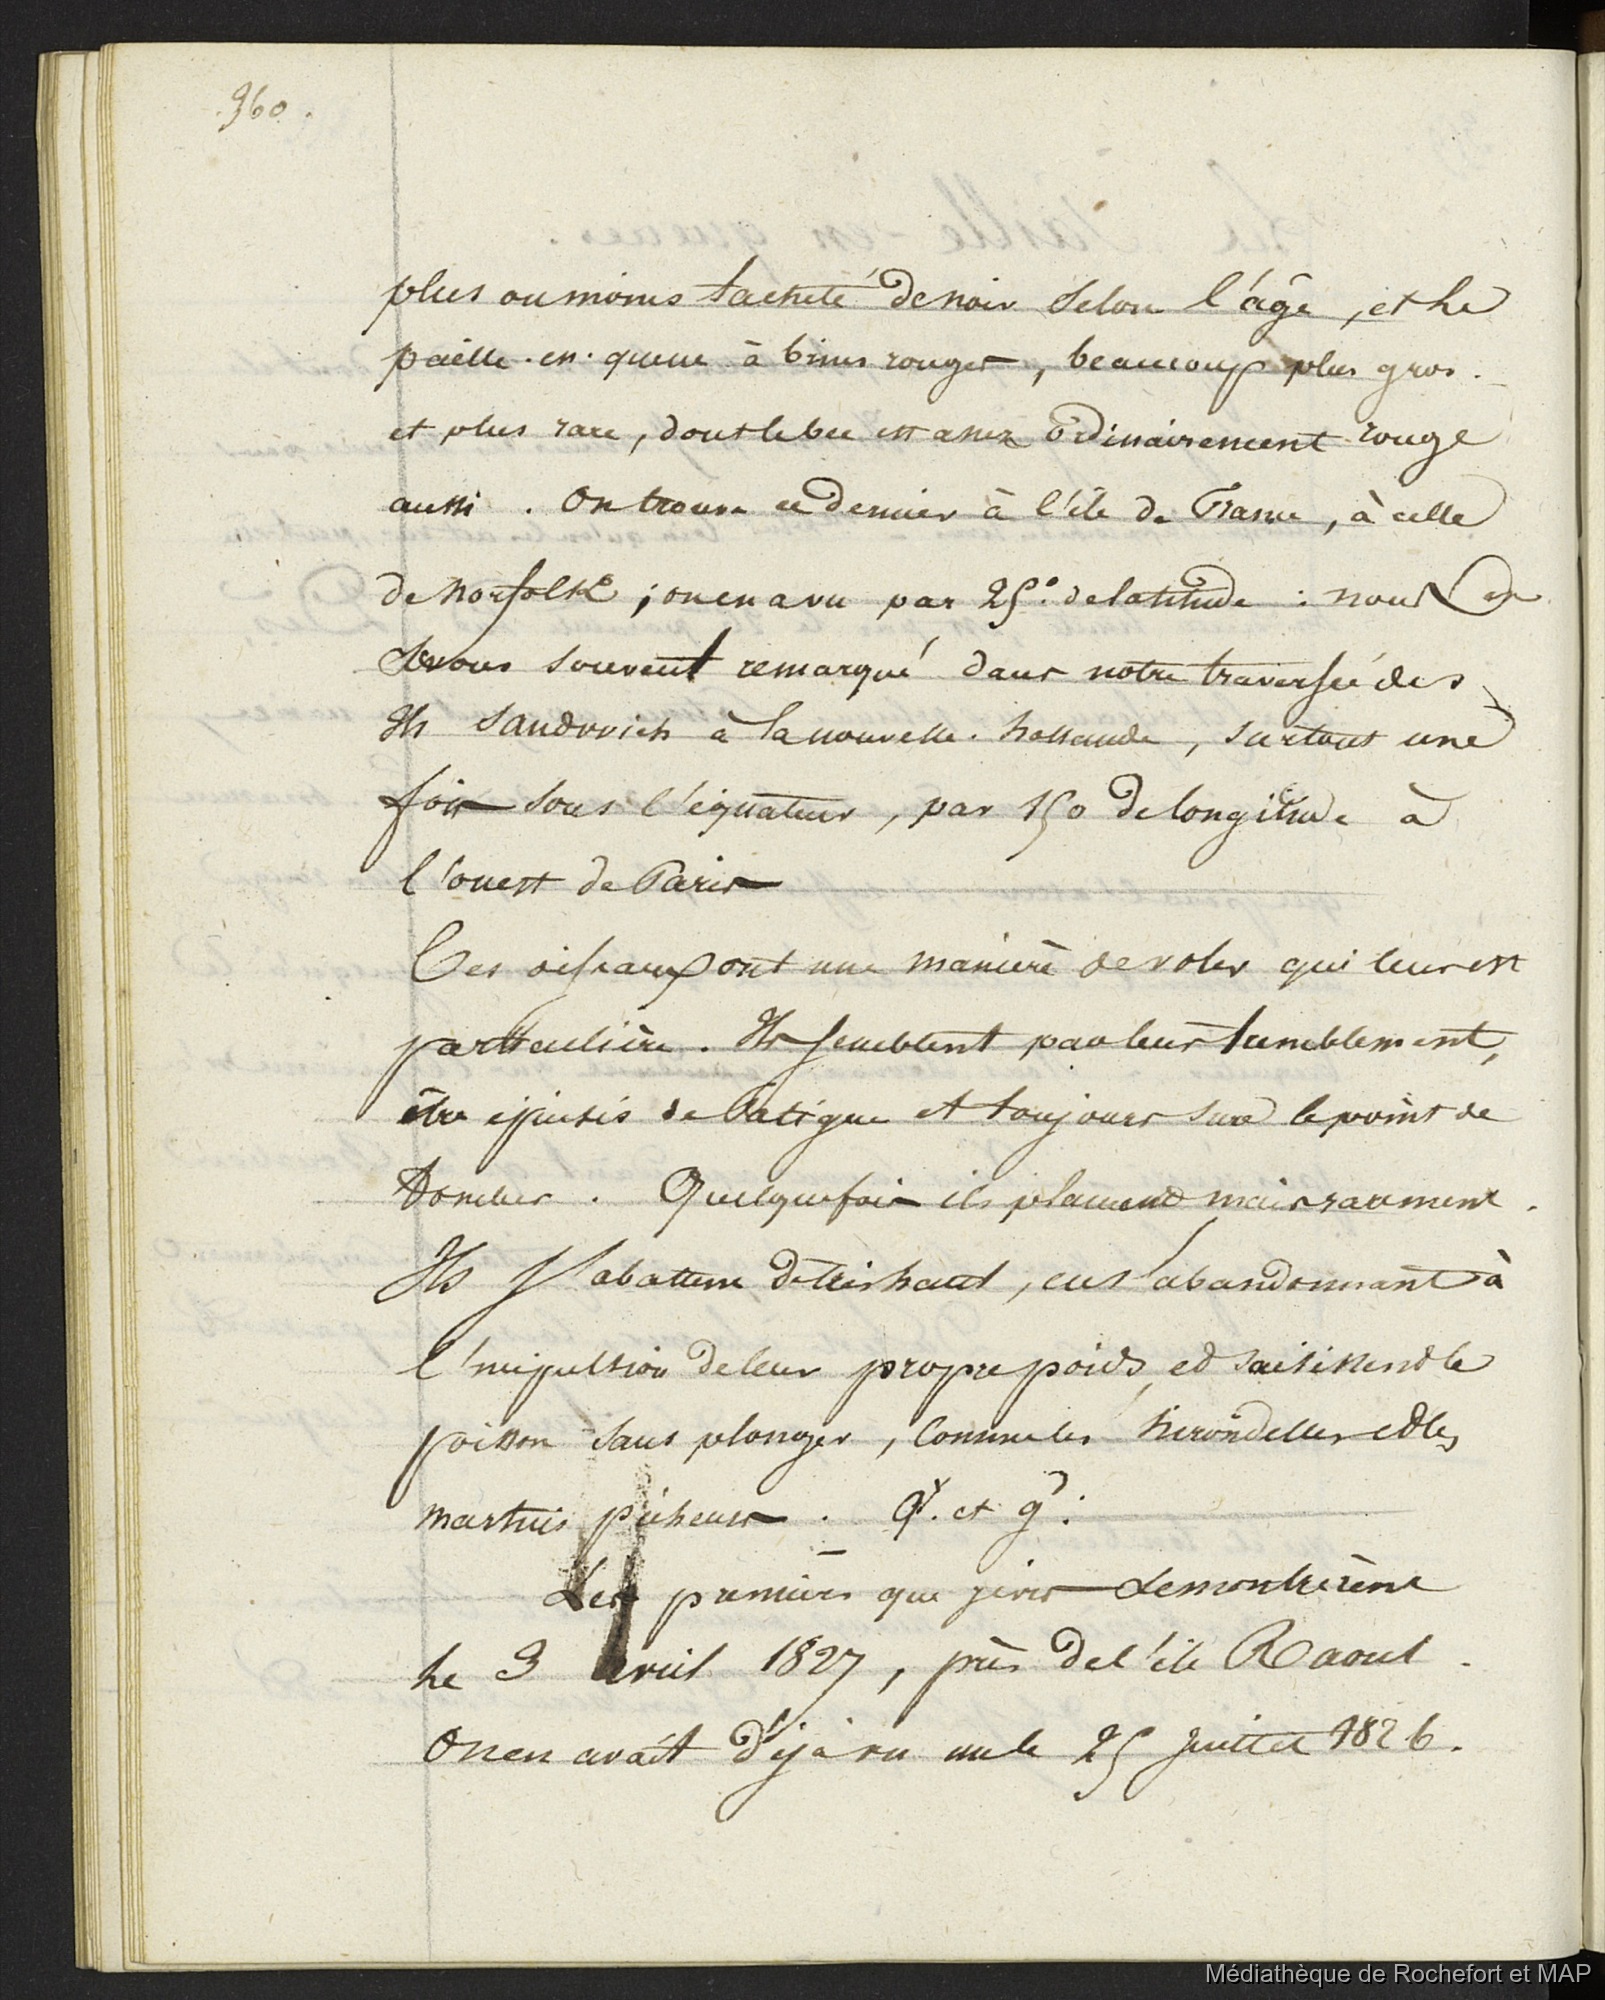 360.
plus ou moins tacheté de noir selon l'âge, et le
paille-en-queue à brins rouges, beaucoup plus gros
et plus rare, dont le bec est assez ordinairement rouge
aussi. On trouve ce dernier à l'île de France, à celle
de Norfolk; on en a vu par 25°. de latitude : nous en
avons souvent remarqué dans notre traversée des
Iles Sandwich à la nouvelle-hollande, surtout une
fois sous l'équateur, par 150 de longitude à
l'ouest de Paris
Ces oiseaux ont une manière de voler qui leur est
particulière. Ils semblent par leur tremblement,
être épuisés de fatigue et toujours sur le point de
tomber. Quelquefois ils planent mais rarement.
Ils s'abattent de très haut, en s'abandonnant à
l'impulsion de leur propre poids, et saisissent le
poisson sans plonger, comme les hirondelles et les
martins pêcheurs. Qy. et g^d.
Les premiers que je vis se montrèrent
le 3 avril 1827, près de l'île Raoul.
On en avait déjà vu un le 25 juillet 1826.
Médiathèque de Rochefort et MAP